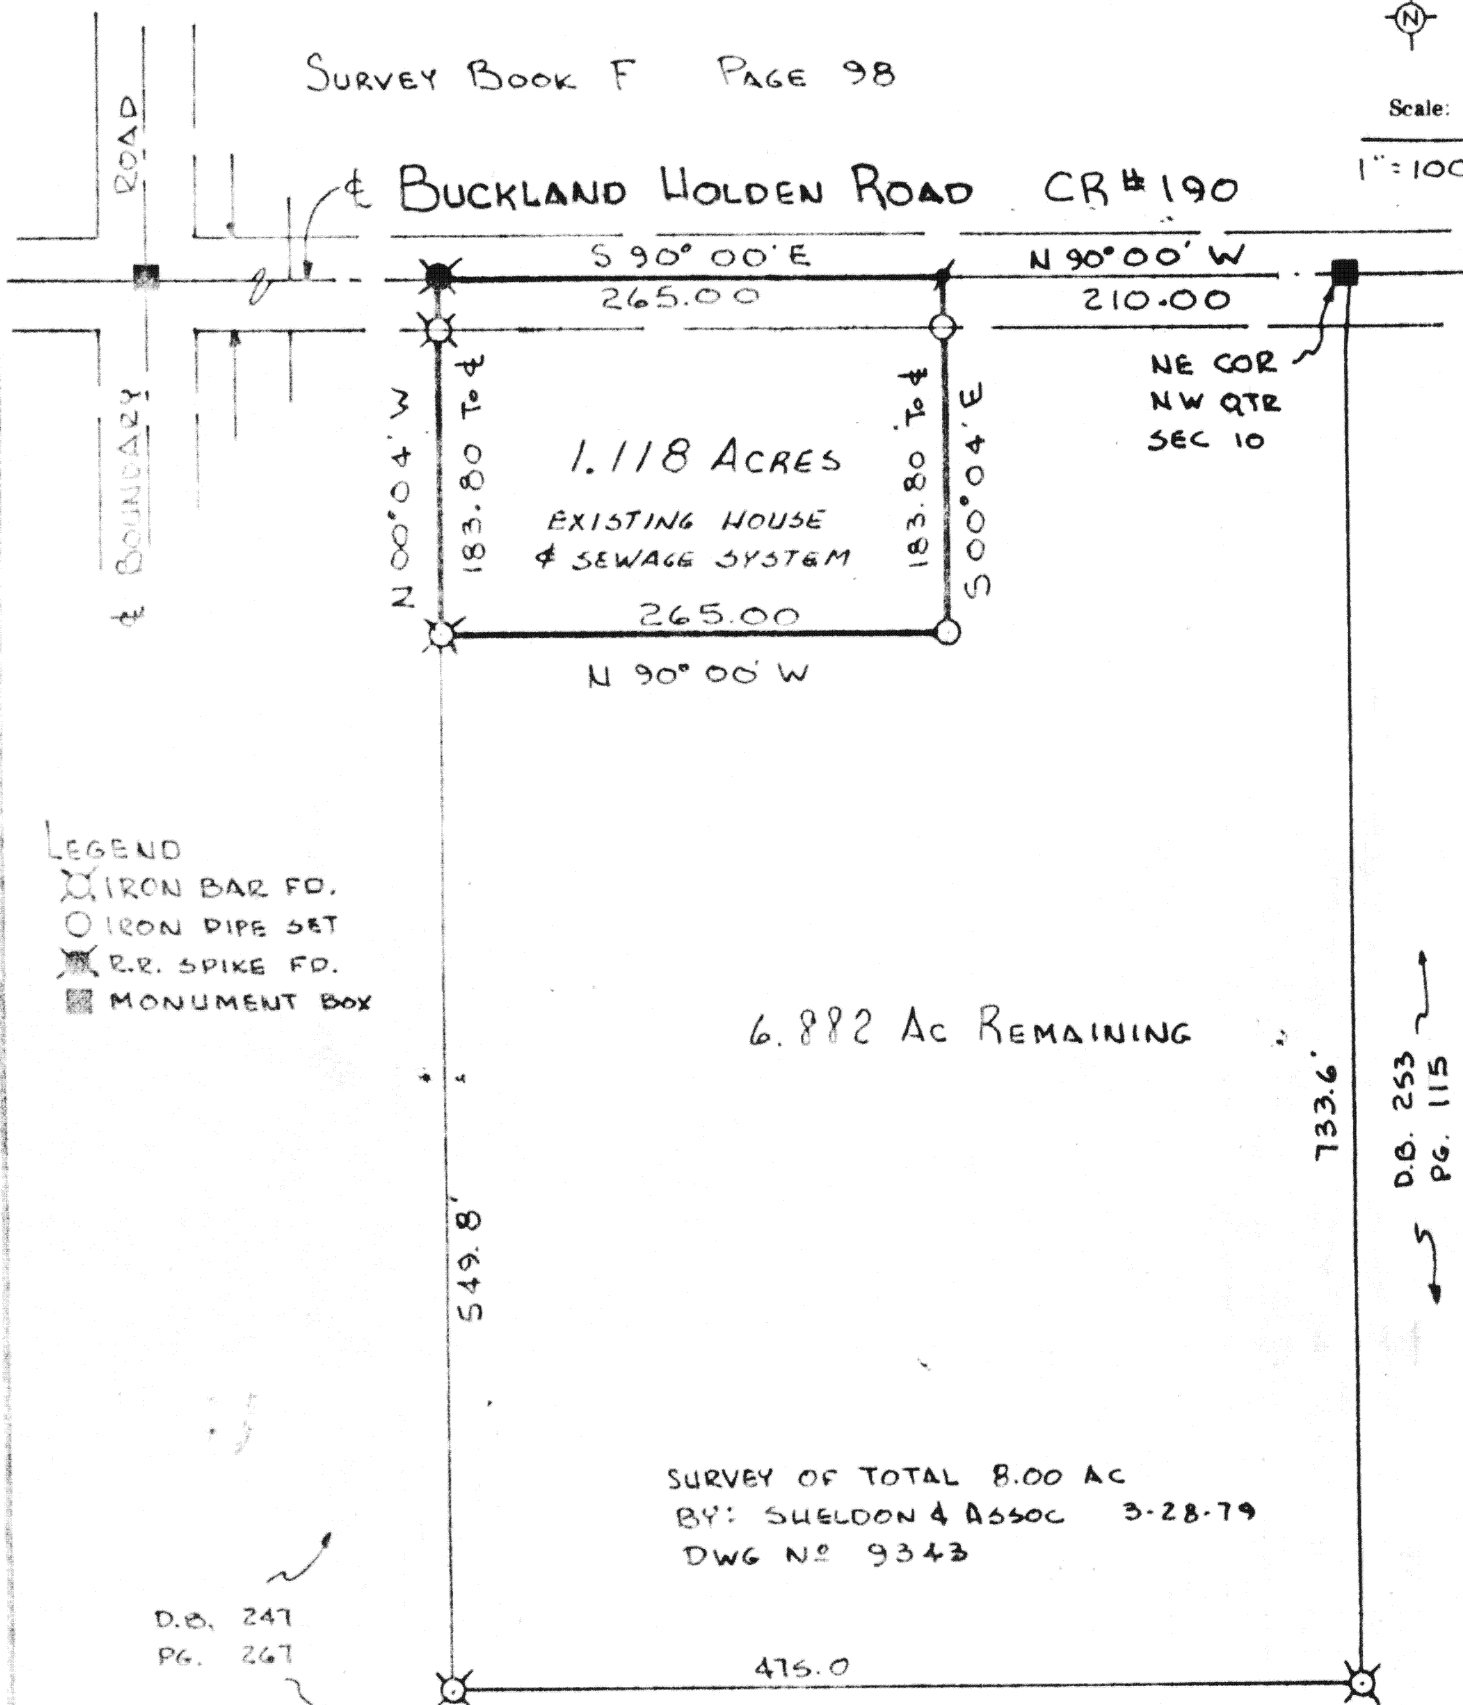 N
SURVEY BOOK F PAGE 98
Scale:
1"=100
ROAD
℄ BUCKLAND HOLDEN ROAD CR#190
S 90° 00' E
265.00
N 90°00' W
210.00
NE COR
NW QTR
SEC 10
N 00°04' W
183.80 To ℄
183.80 To ℄
S 00°04' E
1.118 ACRES
EXISTING HOUSE
& SEWAGE SYSTEM
265.00
N 90° 00' W
℄ BOUNDARY
LEGEND
IRON BAR FD.
IRON PIPE SET
R.R. SPIKE FD.
MONUMENT BOX
6.882 AC REMAINING
733.6'
D.B. 253
PG. 115
549.8'
SURVEY OF TOTAL 8.00 AC
BY: SHELDON & ASSOC 3-28-79
DWG Nº 9343
D.B. 247
PG. 267
475.0